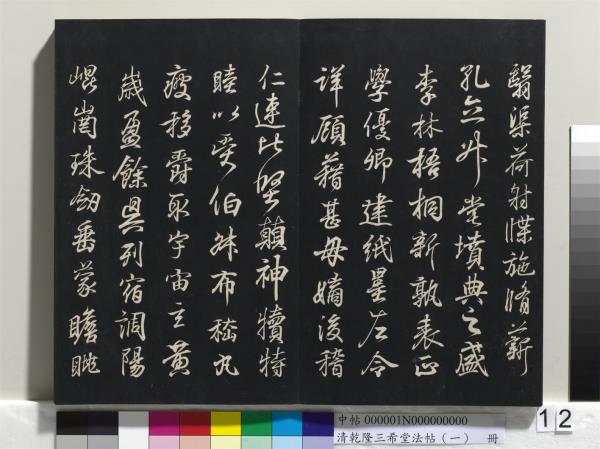 翳渠荷射牒施脩薪
孔升堂墳典之盛
李林梧桐新孰表正
學優卿建紙墨左令
詳顧藉甚毋嫡後稽
仁連比堅顛神犢特
睦以受伯妹布嵇丸
疲移爵取宇宙立黃
歲盈餘具列宿調陽
崐崗珠劒垂蒙瞻眺
中帖 000001N000000000
清乾隆三希堂法帖(一) 冊
12